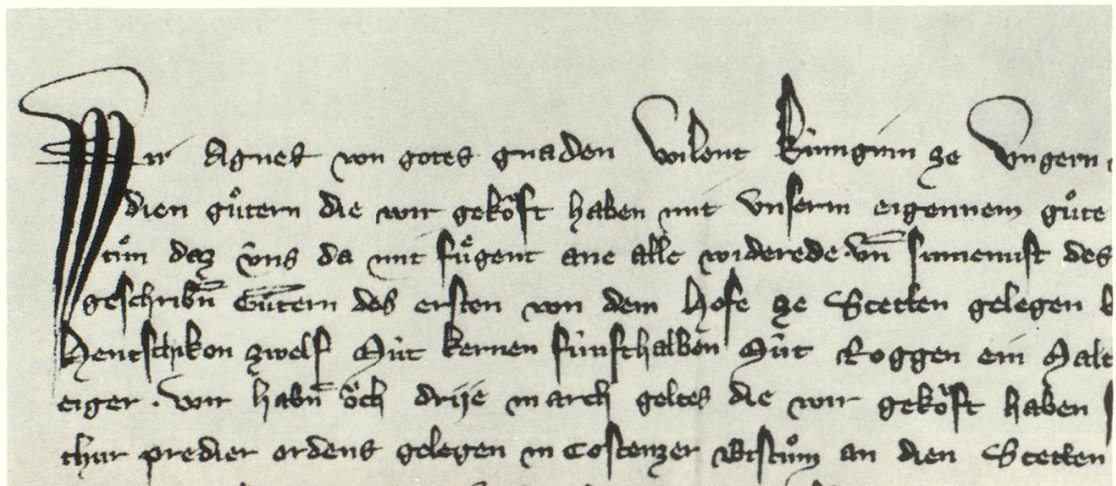 Wir Agnes von gotes gnaden Wilent Küniginn ze Vngern
dien guͦtern die wir gekoͮft haben mit Vnserm eigennem guͦte
tuͦn daz v̂ns da mit fuͤgent ane alle widerede. vn̄ sumenust des
geschribn̄ Guͤtern des ersten von dem Hofe ze Stetten gelegen
Hentschikon zwelf Mút kernen fúnfthalben Mút Roggen ein Malt
eiger. Wir habn̄ oͮch drije march geltes die wir gekoͮft haben
thur predier ordens gelegen in Costenzer Bistuͦm an dien Stetten